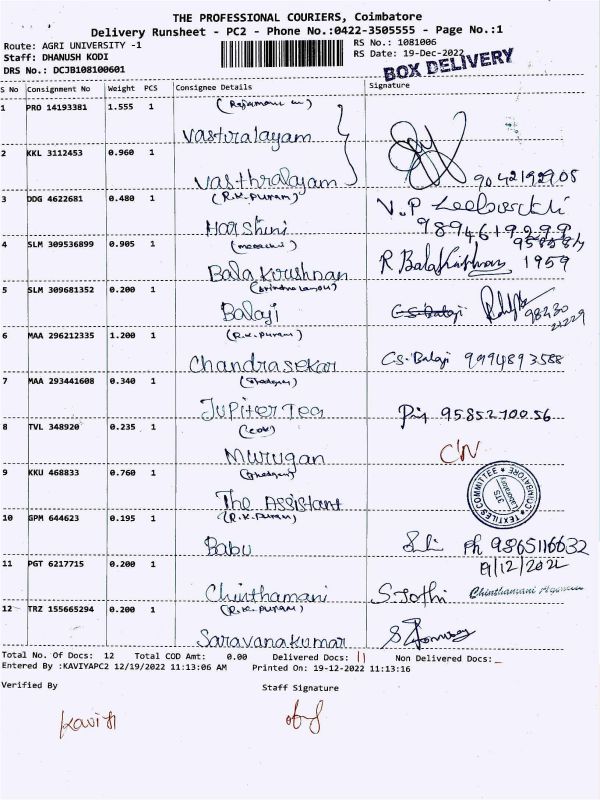 THE PROFESSIONAL COURIERS, Coimbatore
Delivery Runsheet - PC2 - Phone No.:0422-3505555 - Page No.:1
Route: AGRI UNIVERSITY -1 RS No.: 1081006
Staff: DHANUSH KODI RS Date: 19-Dec-2022
DRS No.: DCJB108100601 BOX DELIVERY
S No Consignment No Weight PCS Consignee Details Signature
1 PRO 14193381 1.555 1
Vastralayam
2 KKL 3112453 0.960 1
Vasthralayam 9042192905
3 DDG 4622681 0.480 1 (R.K. Puram) V.P
Harshini 9894619299
4 SLM 309536899 0.905 1
Bala Krushnan R Balakrishnan 1959
5 SLM 309681352 0.200 1
Balaji CS Balaji 98430
6 MAA 296212335 1.200 1 (R.K. Puram)
Chandrasekar CS-Balaji 9994893588
7 MAA 293441608 0.340 1
Jupiter Tea 9585270056
8 TVL 348920 0.235 1
Murugan C'N
9 KKU 468833 0.760 1
The Assistant TEXTILES COMMITTEE COIMBATORE Laboratory
10 GPM 644623 0.195 1 (R.K. Puram)
Babu Ph 9865116632
11 PGT 6217715 0.200 1 19/12/2022
Chinthamani S. Jothi Chinthamani Agencies
12 TRZ 155665294 0.200 1 (R.K. Puram)
Saravanakumar
Total No. Of Docs: 12 Total COD Amt: 0.00 Delivered Docs: 11 Non Delivered Docs:
Entered By :KAVIYAPC2 12/19/2022 11:13:06 AM Printed On: 19-12-2022 11:13:16
Verified By Staff Signature